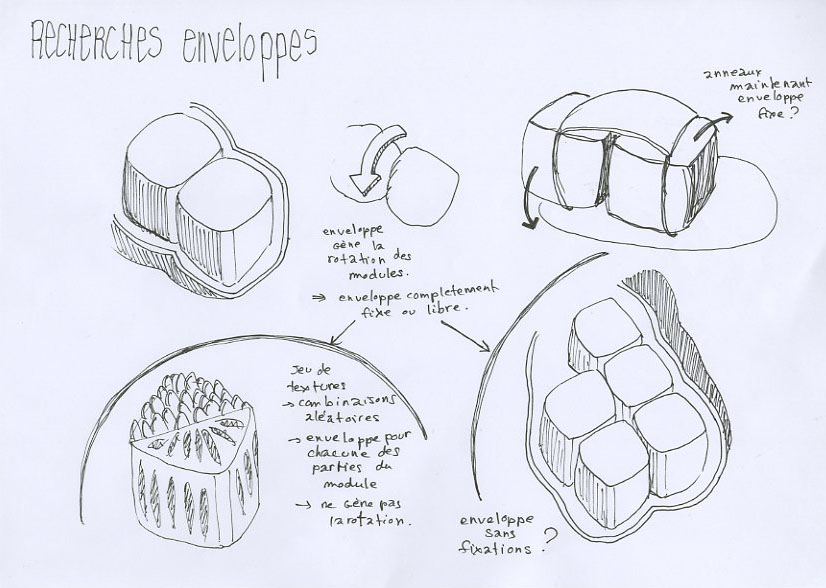 RECHERCHES enveloppes
anneaux
maintenant
enveloppe
fixe ?
enveloppe
gène la
rotation des
modules.
⇒ enveloppe completement
fixe ou libre.
Jeu de
textures
→ combinaisons
aléatoires
→ enveloppe pour
chacune des
parties du
module
→ ne gène pas
la rotation.
enveloppe
sans
fixations ?